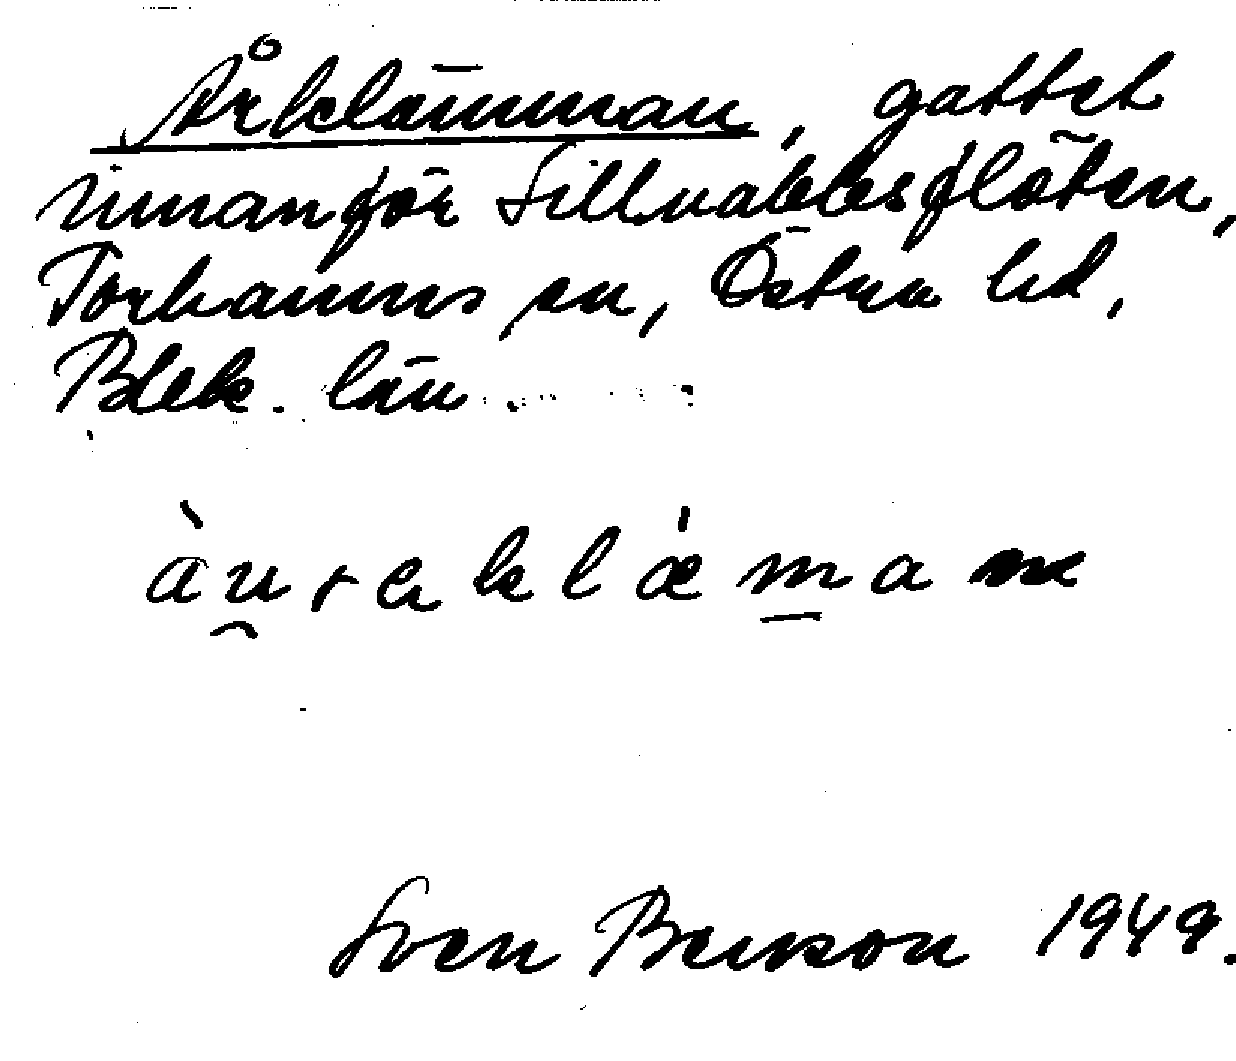 Årklämman, gattet
innanför Sillnabbesflöten,
Torhamns sn, Östra hd,
Blek. län
Sven Benson 1949.